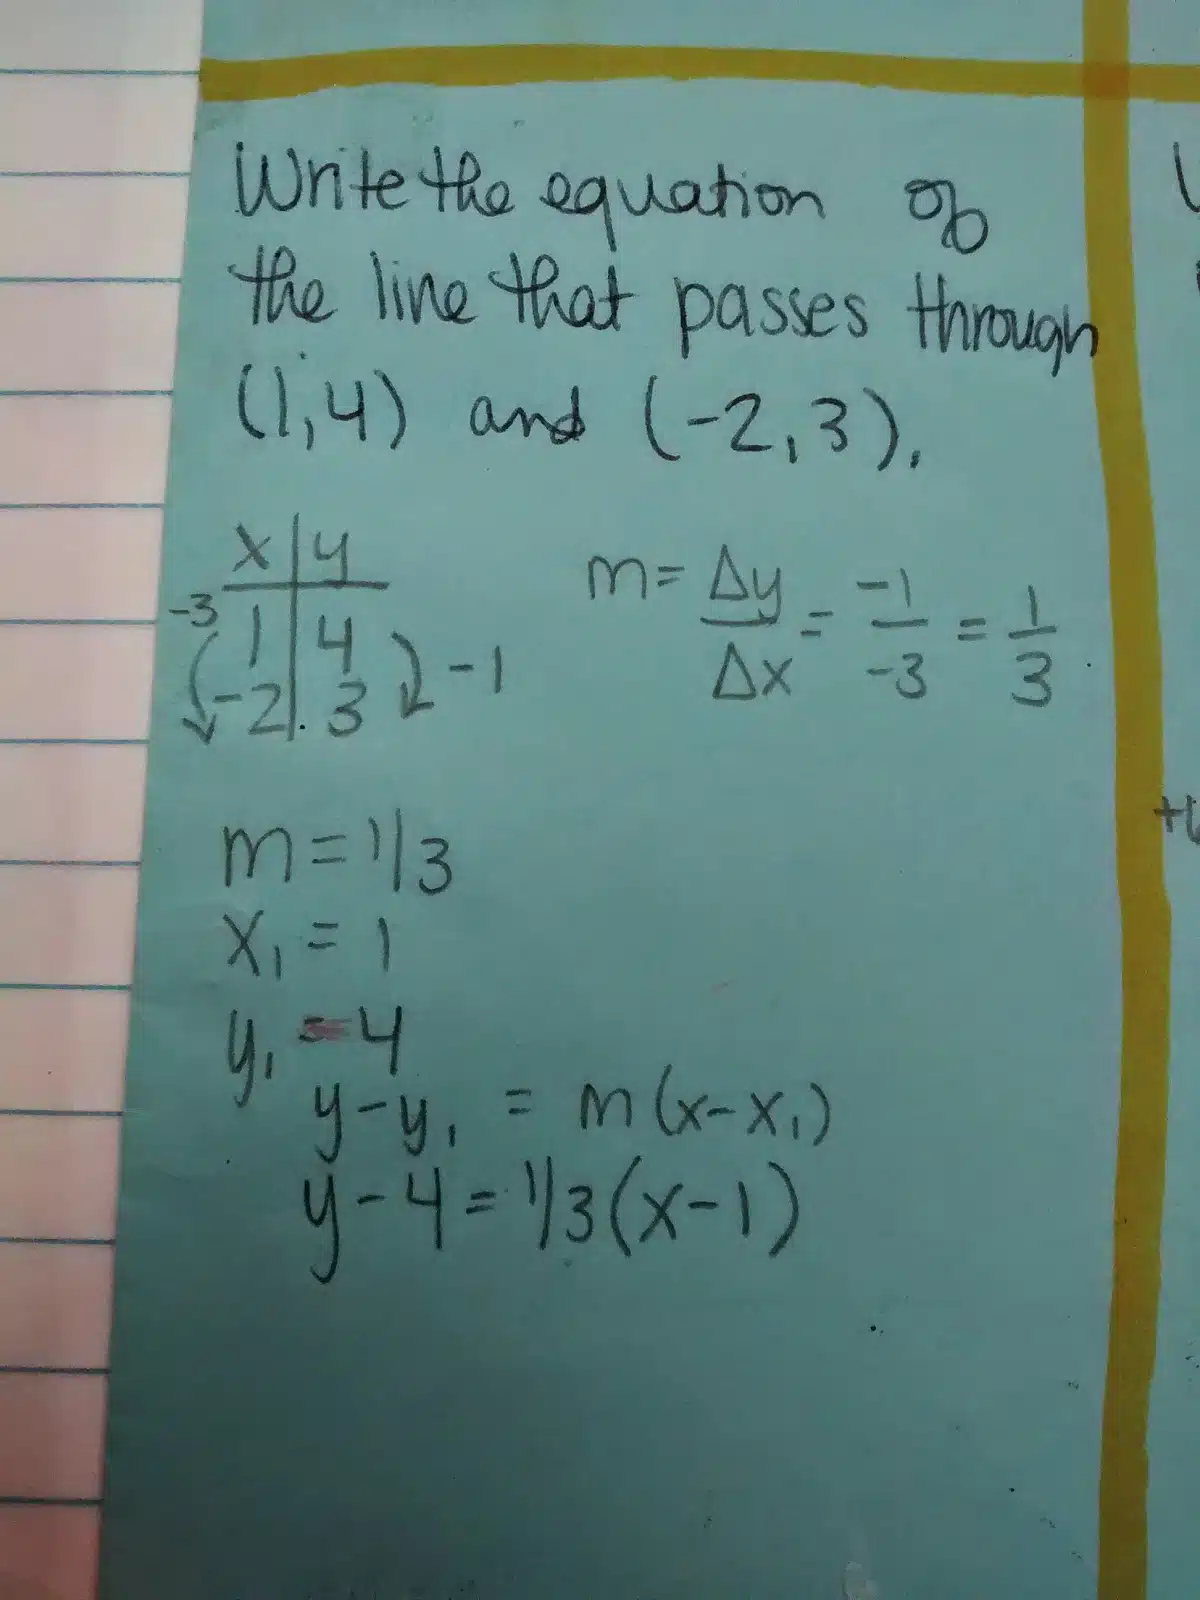 Write the equation of
the line that passes through
(1,4) and (-2,3).
x | y
-3
1 | 4
-2 | 3
-1
m = Δy/Δx = -1/-3 = 1/3
m = 1/3
x₁ = 1
y₁ = 4
y-y₁ = m(x-x₁)
y-4 = 1/3(x-1)